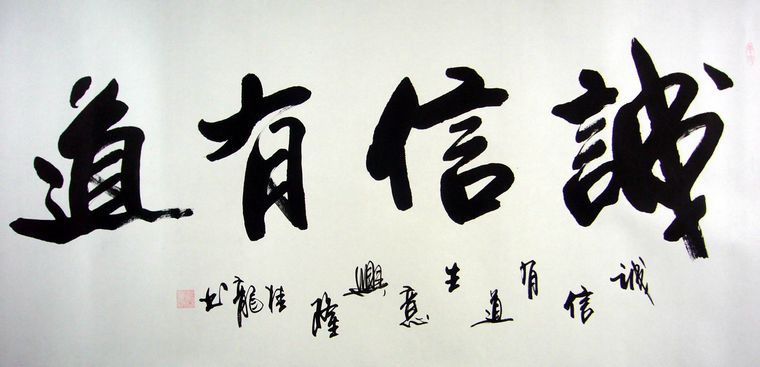 誠信有道
誠信有道生意興隆桂龍书